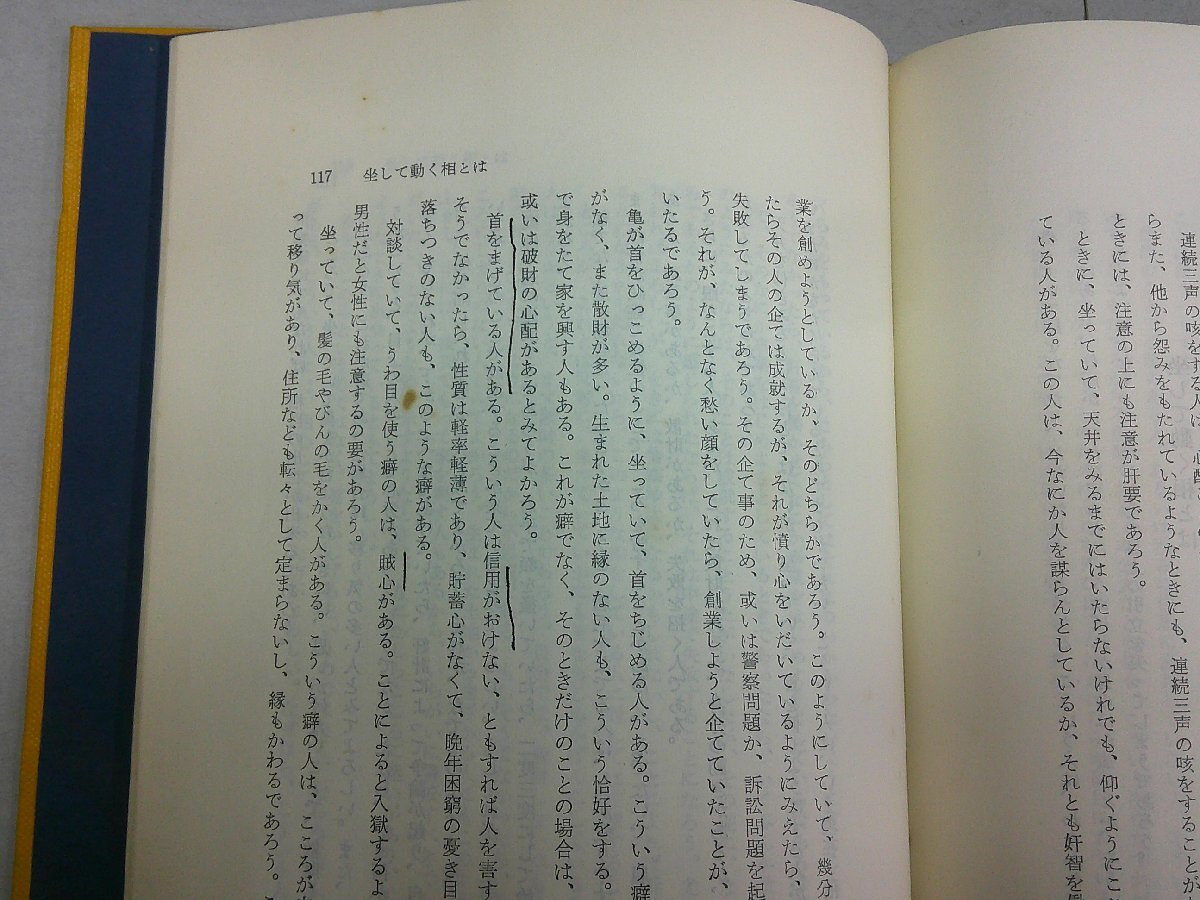 連続三声の咳をする人は、心配
らまた、他から怨みをもたれているようなときにも、連続三声の咳をすることが
ときには、注意の上にも注意が肝要であろう。
ときに、坐っていて、天井をみるまでにはいたらないけれでも、仰ぐようにこ
ている人がある。この人は、今なにか人を謀らんとしているか、それとも奸智を
117 坐して動く相とは
業を創めようとしているか、そのどちらかであろう。このようにしていて、幾分
たらその人の企ては成就するが、それが憤り心をいだいているようにみえたら、
失敗してしまうであろう。その企て事のため、或いは警察問題か、訴訟問題を起
う。それが、なんとなく愁い顔をしていたら、創業しようと企てていたことが、
いたるであろう。
亀が首をひっこめるように、坐っていて、首をちじめる人がある。こういう癖
がなく、また散財が多い。生まれた土地に縁のない人も、こういう恰好をする。
で身をたて家を興す人もある。これが癖でなく、そのときだけのことの場合は、
或いは破財の心配があるとみてよかろう。
首をまげている人がある。こういう人は信用がおけない、ともすれば人を害す
そうでなかったら、性質は軽率軽薄であり、貯蓄心がなくて、晩年困窮の憂き目
落ちつきのない人も、このような癖がある。
対談していて、うわ目を使う癖の人は、賊心がある。ことによると入獄するよ
男性だと女性にも注意するの要があろう。
坐っていて、髪の毛やびんの毛をかく人がある。こういう癖の人は、こころが
って移り気があり、住所なども転々として定まらないし、縁もかわるであろう。